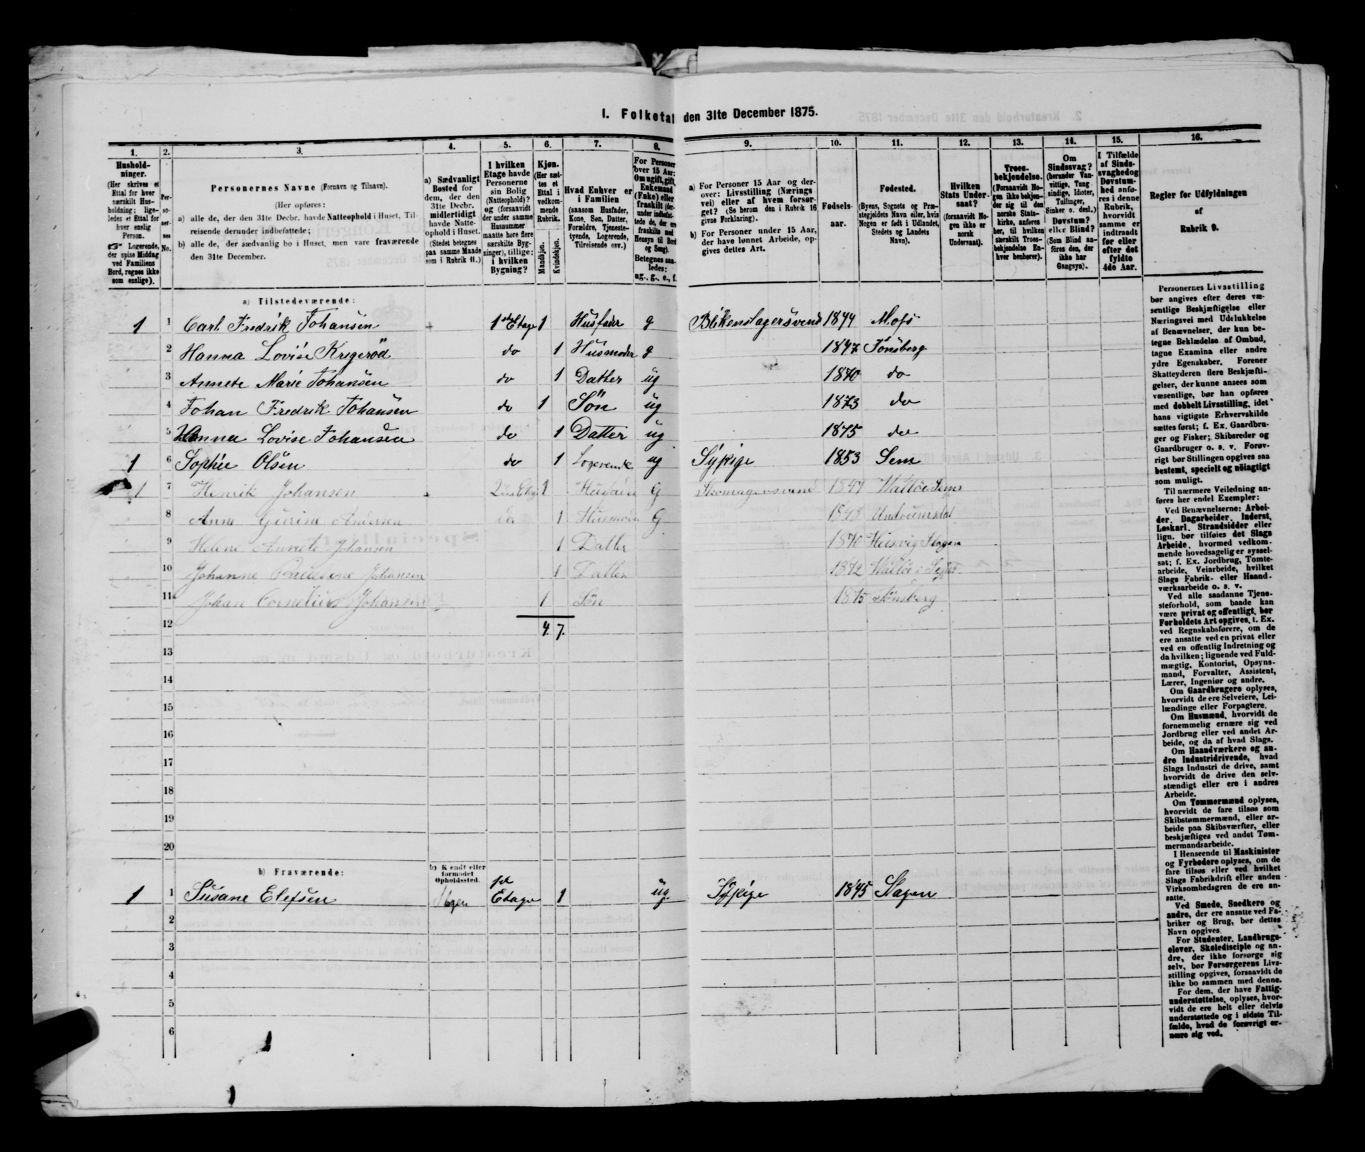 I. Folketal den 31te December 1875.
1. 2. 3. 4. 5. 6. 7. 8. 9. 10. 11. 12. 13. 14. 15. 16.
Hushold-
ninger.
(Her skrives et
Ettal for hver
særskilt Hus-
holdning; lige-
ledes et Ettal for
hver enslig
Person.
Logerende,
der spise Middag
ved Familiens
Bord, regnes ikke
som enslige).
Personernes Navne (Fornavn og Tilnavn).
(Her opføres:
a) alle de, der den 31te Decbr. havde Natteophold i Huset, Til-
reisende derunder indbefattede;
b) alle de, der sædvanlig bo i Huset, men vare fraværende
den 31te December.
a) Sædvanligt
Bosted for
dem, der den
31te Decbr.
midlertidigt
havde Natte-
ophold i Huset.
(Stedet betegnes
paa samme Maade
som i Rubrik 11.)
I hvilken
Etage havde
Personerne
sin Bolig
(Natteophold)?
og (forsaavidt
der under samme
Husnummer
maatte høre flere
særskilte Byg-
ninger), tillige:
i hvilken
Bygning?
Kjøn.
(Her sæt-
tes et
Ettal i
vedkom-
mende
Rubrik.)
Mandkjøn.
Kvindekjøn.
Hvad Enhver er
i Familien
(saasom Husfader,
Kone, Søn, Datter,
Forældre, Tjeneste-
tyende, Logerende,
Tilreisende osv.)
For Personer
over 15 Aar:
Om ugift, gift,
Enkemand
(Enke) eller
fraskilt
Betegnes saa-
ledes:
ug., g., e., f.
a) For Personer 15 Aar og der-
over: Livsstilling (Nærings
vei) eller af hvem forsør-
get? (Se herom den i Rubrik 16
givne Forklaring).
b) For Personer under 15 Aar,
der have lønnet Arbeide, op-
gives dettes Art.
Fødsels-
aar.
Fødested.
(Byens, Sognets og Præ-
stegjeldets Navn eller, hvis
Nogen er født i Udlandet,
Stedets og Landets
Navn).
Hvilken
Stats Under-
saat?
(forsaavidt No-
gen ikke er
norsk
Undersaat).
Troes-
bekjendelse.
(Forsaavidt No-
gen ikke bekjen-
der sig til den
norske Stats-
kirke, anføres
her, til hvilken
særskilt Troes-
bekjendelse En-
hver henhører).
Om
Sindssvag?
(herunder Van-
vittige, Tung
sindige, Idioter,
Tullinger,
Sinker o. desl.)
Døvstum?
eller Blind?
(Som Blind an-
føres den, der
ikke har
Gangsyn).
I Tilfælde
af Sinds-
svaghed og
Døvstum-
hed anfø-
res i denne
Rubrik,
hvorvidt
samme er
indtraadt
før eller
efter det
fyldte
4de Aar.
Regler for Udfyldningen
af
Rubrik 9.
a) Tilstedeværende:
1 1 Carl Fredrik Johansen 1ste Etage 1 Husfader g Blikenslagersvend 1844 Moss
2 Hanna Lovise Krigerød do 1 Husmoder g 1847 Tønsberg
3 Annete Marie Johansen do 1 Datter ug 1870 do
4 Johan Fredrik Johansen do 1 Søn ug 1873 do
5 Hanna Lovise Johansen do 1 Datter ug 1875 do
1 6 Sophie Olsen do 1 Logerende ug Sypige 1853 Sem
1 7 Henrik Johansen 1 G Skomagersvend Valløe Sem
8 Anna Andersen do 1 Husmoder G
9 Helene Annete Johansen 1 Datter 1870 Slagen
10 Johanne Johansen 1 Datter 1872
11 Johan Cornelius Johansen 1 Søn 1875 Tønsberg
12 4. 7.
13
14
15
16
17
18
19
20
b) Fraværende:
b) Kendt eller
formodet
Opholdssted.
1 1 Susane Elefsen 1st Etage 1 ug Sypige 1845 Slagen
2
3
4
5
6
Personernes Livsstilling
bør angives efter deres væ-
sentlige Beskjæftigelse eller
Næringsvei med Udelukkelse
af Benævnelser, der kun be-
tegne Beklædelse af Ombud,
tagne Examina eller andre
ydre Egenskaber. Forener
Skatteyderen flere Beskjæfti-
gelser, der kunne ansees som
væsentlige, bør han opføres
med dobbelt Livsstilling, idet
hans vigtigste Erhvervskilde
sættes først; f. Ex. Gaardbru-
ger og Fisker; Skibsreder og
Gaardbruger o. s. v. Forøv-
rigt bør Stillingen opgives saa
bestemt, specielt og nøiagtigt
som muligt.
Til nærmere Veiledning an-
føres her endel Exempler:
Ved Benævnelserne: Arbei-
der, Dagarbeider, Inderst,
Løskarl, Strandsidder eller
lign. bør tilføies det Slags
Arbeide, hvormed vedkom-
mende hovedsagelig er syssel-
sat; f. Ex. Jordbrug, Tomte-
arbeide, Veiarbeide, hvilket
Slags Fabrik- eller Haand-
værksarbeide o. s. v.
Ved alle saadanne Tjene-
steforhold, som baade kan
være privat og offentligt, bør
Forholdets Art opgives, f. Ex.
ved Regnskabsførere, om de
ere ansatte ved en privat eller
ved en offentlig Indretning og
da hvilken; lignende ved Fuld-
mægtig, Kontorist, Opsyns-
mand, Forvalter, Assistent,
Lærer, Ingeniør og andre.
Om Gaardbrugere oplyses,
hvorvidt de ere Selveiere, Lei-
lændinge eller Forpagtere.
Om Husmænd, hvorvidt de
fornemmelig ernære sig ved
Jordbrug eller ved andet Ar-
beide, og da af hvad Slags.
Om Haandværkere og an-
dre Industridrivende, hvad
Slags Industri de drive, samt
hvorvidt de drive den selv-
stændigt eller ere i andres
Arbeide.
Om Tømmermænd oplyses,
hvorvidt de fare tilsøs som
Skibstømmermænd, eller ar-
beide paa Skibsværfter, eller
beskjæftiges ved andet Tøm-
mermandsarbeide.
I Henseende til Maskinister
og Fyrbødere oplyses, om de
fare tilsøs eller ved hvilket
Slags Fabrikdrift eller anden
Virksomhed de ere an-
satte.
Ved Smede, Snedkere og
andre, der ere ansatte ved Fa-
briker og Brug, bør dettes
Navn opgives.
For Studenter, Landbrugs-
elever, Skoledisciple og an-
dre, der ikke forsørge sig
selv, bør Forsørgerens Livs-
stilling opgives, forsaavidt de
ikke bo sammen med denne.
For dem, der have Fattig-
understøttelse, oplyses, hvor-
vidt de ere helt eller delvis
understøttede og i sidste Til-
fælde, hvad de forøvrigt er-
nære sig ved.